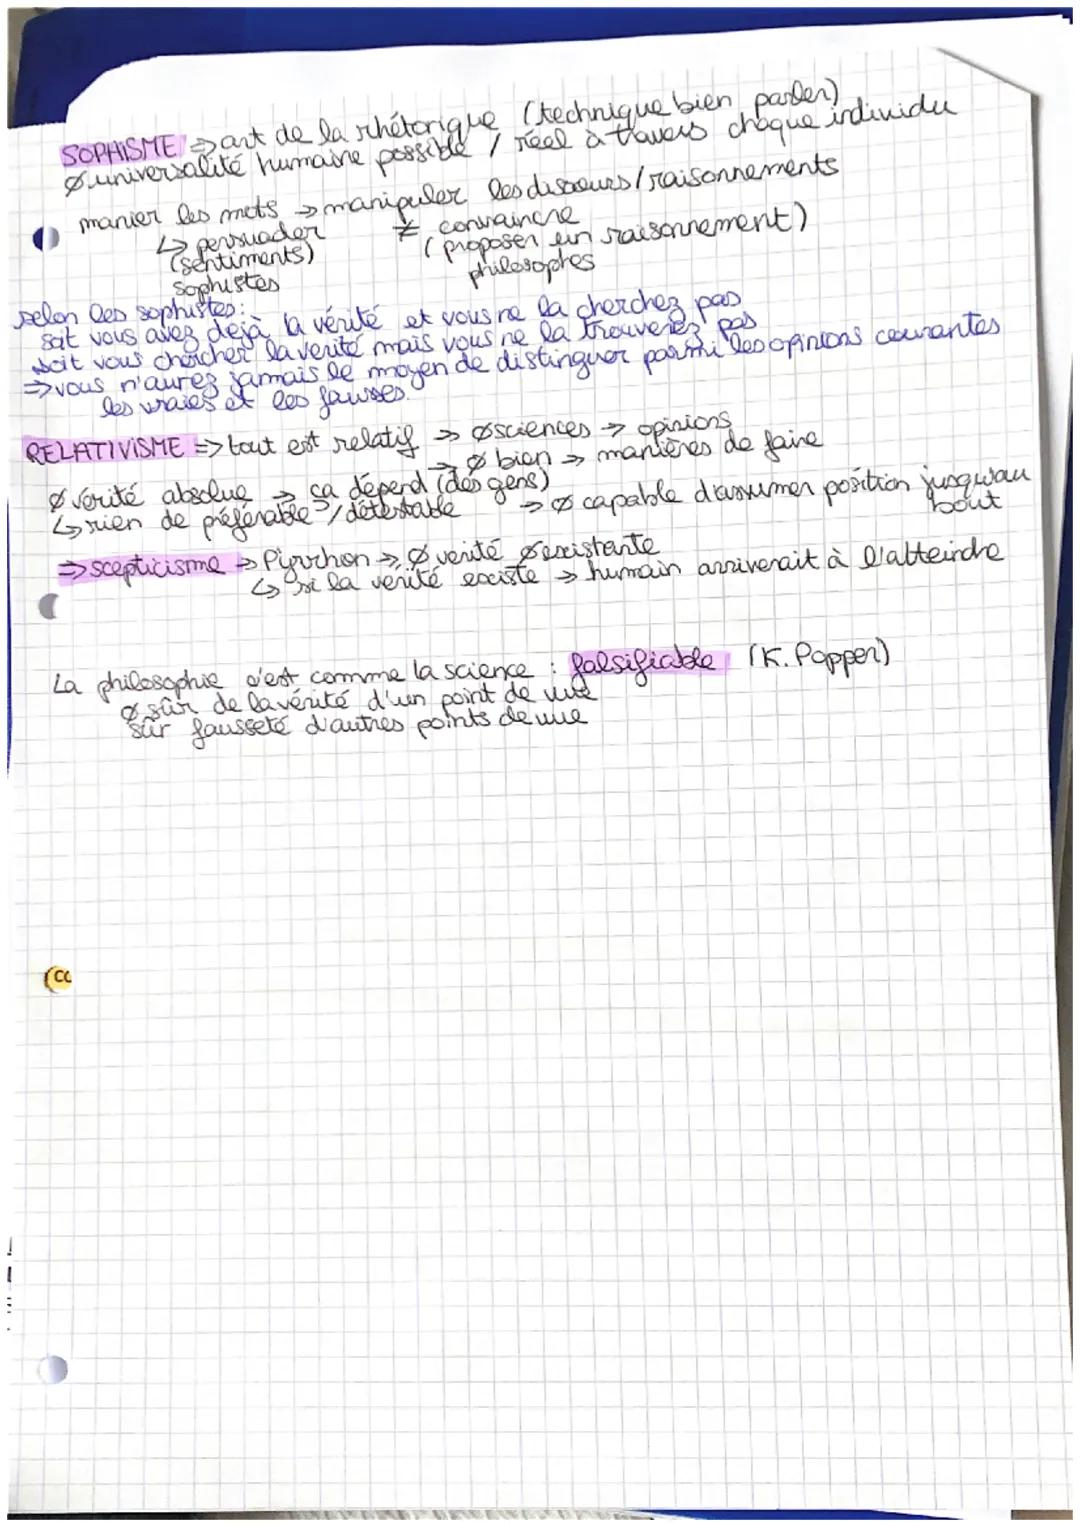 SOPHISME => art de la rhétorique (technique bien parler)
Ø universalité humaine possible / réel à travers chaque individu
manier les mots → manipuler les discours/raisonnements
↳ persuader ≠ convaincre
(sentiments) (proposer un raisonnement)
sophistes philosophes
selon les sophistes:
soit vous avez déjà la vérité et vous ne la cherchez pas
soit vous chercher la verité mais vous ne la trouverez pas
=> vous n'aurez jamais le moyen de distinguer parmi les opinions courantes
les vraies et les fausses.
RELATIVISME => tout est relatif → Ø sciences → opinions
→ Ø bien → manières de faire
Ø vérité absolue → ça dépend (des gens)
↳ rien de préférable / détestable → Ø capable d'assumer position jusqu'au
bout
=> scepticisme → Pyrrhon → Ø verité Ø existante
↳ si la verité existe → humain arriverait à l'atteindre
La philosophie c'est comme la science : falsifiable (K. Popper)
Ø sûr de la vérité d'un point de vue
sûr fausseté d'autres points de vue
CC